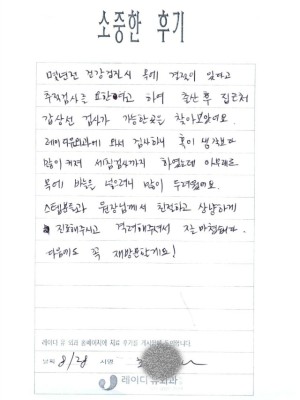 소중한 후기
몇년전 건강검진시 목에 결절이 있다고
추적검사를 요한다고 하여 출산 후 집근처
갑상선 검사가 가능한곳을 찾아보았어요.
레이디유외과에 와서 검사하니 혹이 생각보다
많이 커져 세침검사까지 하였는데 아무래도
목에 바늘을 넣으려니 많이 두려웠어요.
스텝분들과 원장님께서 친절하고 상냥하게
진료해주시고 격려해주셔서 잘 마쳤습니다.
다음에도 꼭 재방문할게요!
레이디 유 외과 홈페이지에 치료 후기를 게시함을
날짜 8/28 서명
레이디유외과